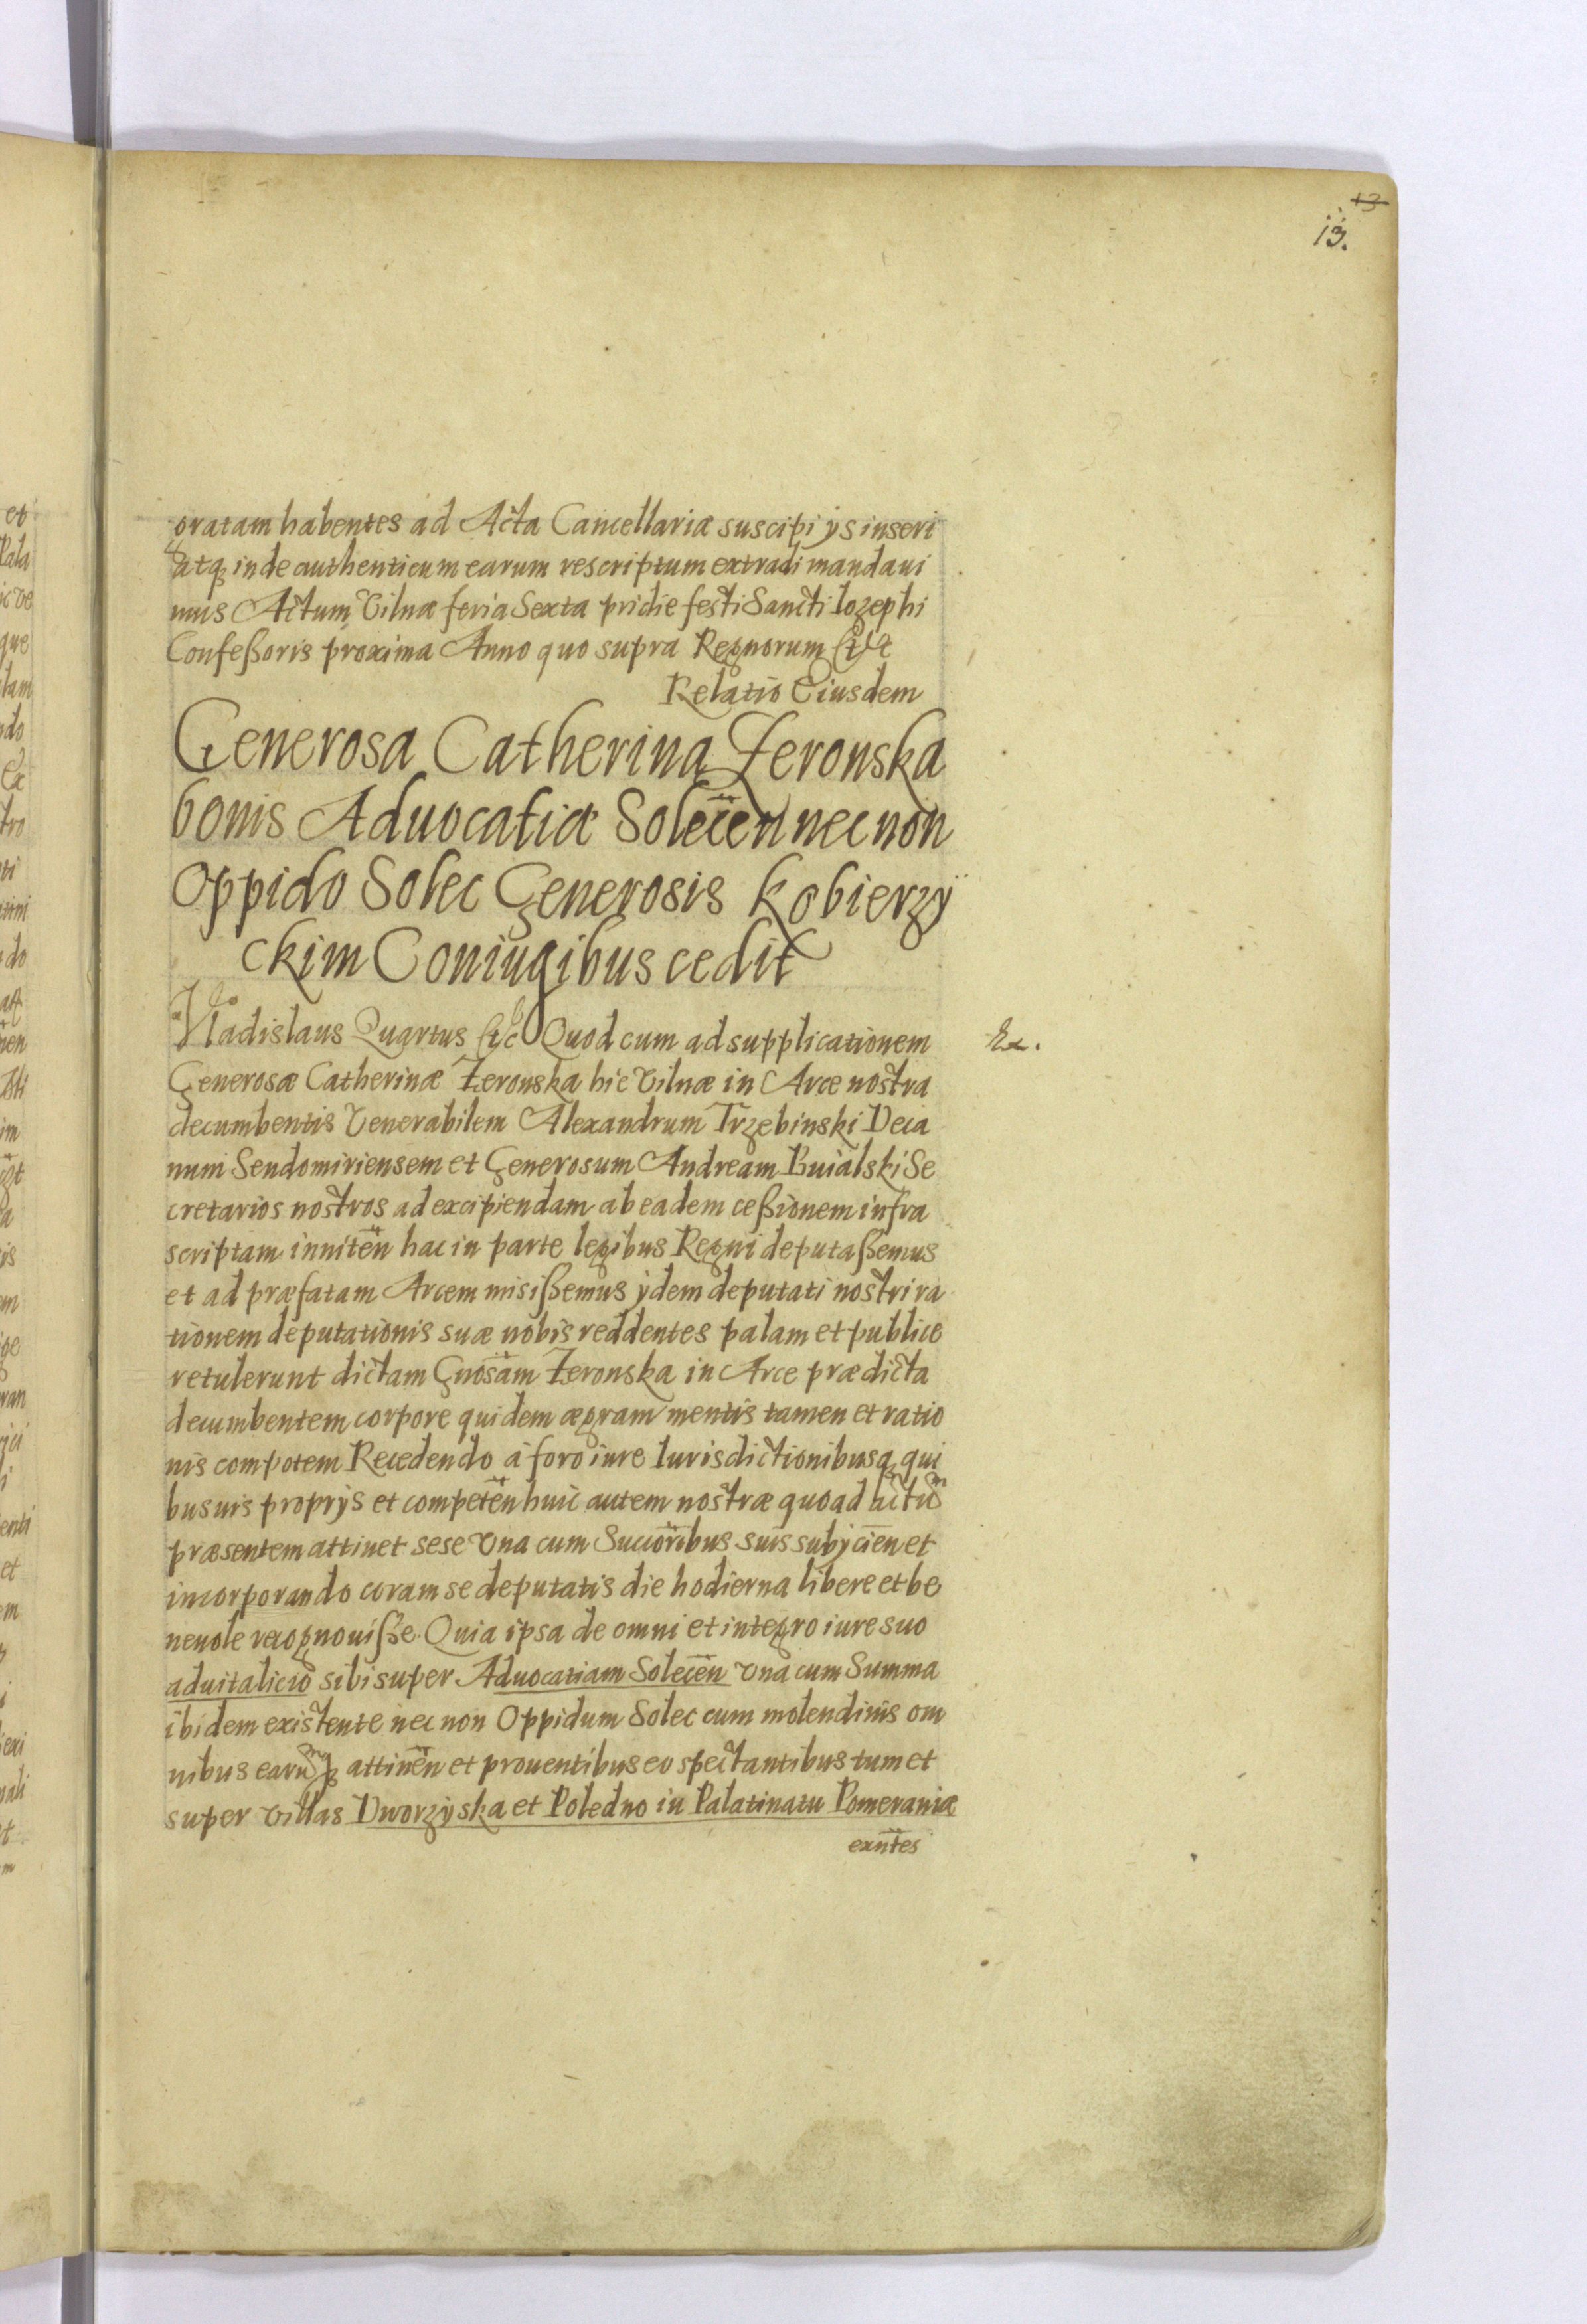 13
13.
oratam habentes ad Acta Cancellariæ suscipi ijs inseri
atq₃ inde authenticum earum rescriptum extradi mandaui
mus Actum Vilnæ feria Sexta pridie festi Sancti Iozephi
Confeßoris proxima Anno quo supra Regnorum etc
Relatio Eiusdem
Generosa Catherina Zeronska
bonis Aduocatiæ Solecen nec non
Oppido Solec Generosis Kobierzÿ
ckim Coniugibus cedit
Vladislaus Quartus etc Quod cum ad supplicationem
Ex.
Generosæ Catherinæ Zeronska hic Vilnæ in Arce nostra
decumbentis Venerabilem Alexandrum Trzebinski Deca
num Sendomiriensem et Generosum Andream Buialski Se
cretarios nostros ad excipiendam ab eadem ceßionem infra
scriptam inniten hac in parte legibus Regni deputaßemus
et ad præfatam Arcem misißemus ijdem deputati nostri ra
tionem deputationis suæ nobis reddentes palam et publice
retulerunt dictam Gnosam Zeronska in Arce prædicta
decumbentem corpore quidem ægram mentis tamen et ratio
nis compotem Recedendo a foro iure Iurisdictionibusq₃ qui
busuis proprijs et competen huic autem nostræ quoad actum
præsentem attinet sese Vna cum Succoribus suis subijcien et
incorporando coram se deputatis die hodierna libere et be
neuole recognouiße. Quia ipsa de omni et integro iure suo
aduitalicio sibi super Aduocatiam Solecen Vna cum Summa
ibidem existente nec non Oppidum Solec cum molendinis om
nibus earumq₃ attinen et prouentibus eo spectantibus tum et
super Villas Dworzyska et Poledno in Palatinatu Pomeraniæ
exntes